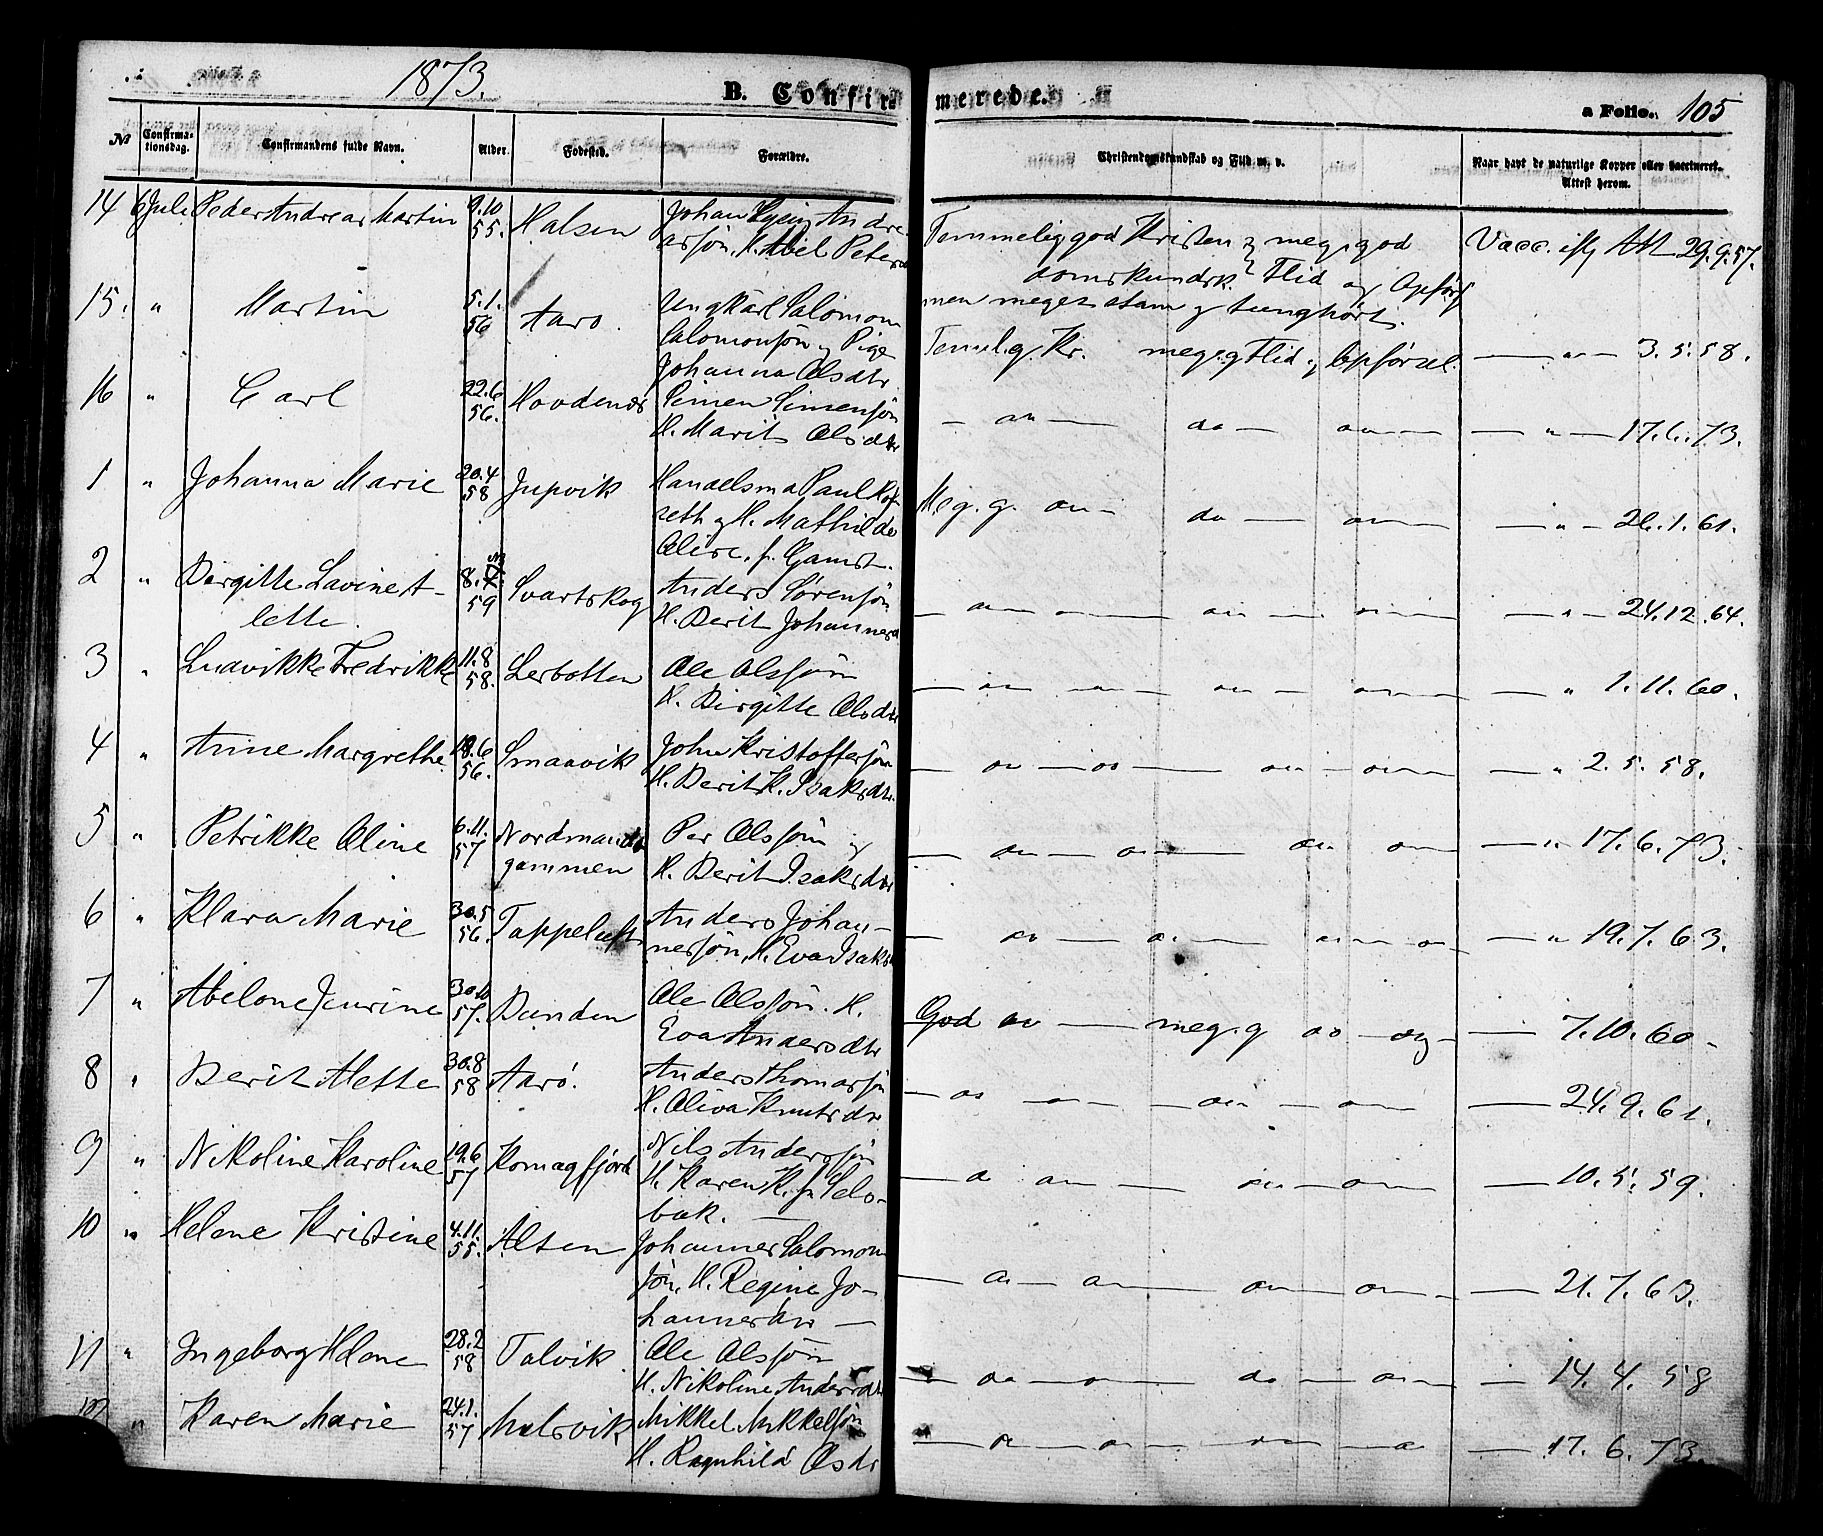 1873.
B. Confirmerede.
a Folio. 105
№
Confirmationsdag.
Confirmandens fulde Navn.
Alder.
Fødested.
Forældre.
Christendomskundskab og Flid m. v.
Naar havt de naturlige Kopper eller vaccineret. Attest herom.
14 6 Juli Peder Andreas Martin 9.10 55. Halsen Johan Andre
asjøn, H. Abel Peters
Temmelig god Kristen meg. god Vacc. iflg Att 29.9.57.
domskundsk. Flid og Opførs
men meget stam og tunghørt.
15. " Martin 5.1. 56 Aarø Ungkarl Salomon
Salomonsjøn og Pige
Johanna Olsdtr.
Teml. g. Kr. meg. g Flid og Opførsel. — " — 3.5.58.
16 " Carl 22.6 56. Hovdenes Simen Simensjøn
H. Marit Olsdtr
— do — do — do — — " — 17.6.73.
1 " Johanna Marie 20.4 58 Jupvik Handelsma Paul
reth og H. Mathilde
Olise, f. Gamst.
Meg. g. do — do — do — — " — 26.1.61.
2 " Birgitte Lavine A-
lette. 8. 59 Svartskog Anders Sørensjøn
H. Berit Johannesd
— do — do — do — — " — 24.12.64.
3 " Ludvikke Fredrikke 11.8 58. Lerbotten Ole Olsjøn
H. Birgitte Olsdtr
— do — do — do — do — — " 1.11.60.
4 " Anne Margrethe 18.6 56. Smaavik John Kristoffersjøn
H. Berit K. Isaksdtr.
— do — do — do — do — — " 2.5.58.
5 " Petrikke Oline 6.11. 57 Nordmands
gammen Per Olsjøn og
H. Berit Isaksdtr
— do — do — do do — — " 17.6.73.
6 " Klara Marie 30.5 56. Tappeluft Anders Johan-
nesjøn, H. Eva Isaks
— do — do — do — do — — " 19.7.63.
7 " Abelone Jeurine 30.10 57. Bunden Ole Olsjøn. H.
Eva Andersdtr
God do — meg. g do — og — — 7.10.60.
8 " Berit Mette 30.8 58 Aarø. Anders Thomasjøn
H. Oliva Knutsdtr
— do do — do — do — — 24.9.61.
9 " Nikoline Karoline 19.6 57 Komagfjord Nils Andersjøn
H. Karen K. f. Selo-
bak. —
— do do — do — do — — 10.5.59.
10 " Helene Kristine 4.11. 55. Alten Johannes Salomon
sjøn, H. Regine Jo-
hannesdtr —
— do — do — do — do — — 21.7.63.
11 " Ingeborg Helene 28.2 58 Talvik Ole Olsjøn
H. Nikoline Andersdtr
— do — do — do — do — — 14.4.58
12 " Karen Marie 24.1. 57 Melsvik Mikkel Mikkelsjøn
H. Ragnhild Olsdtr
— do — do — do — do — 17.6.73.